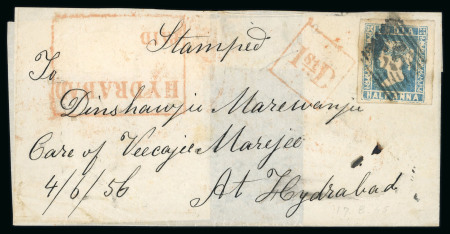 Stamped
To
Dinshawjee Marewanjee
Care of Veecajee Marejee
4/6/56 At Hydrabad
HYDRABAD
PAID
1st
INDIA
HALF ANNA